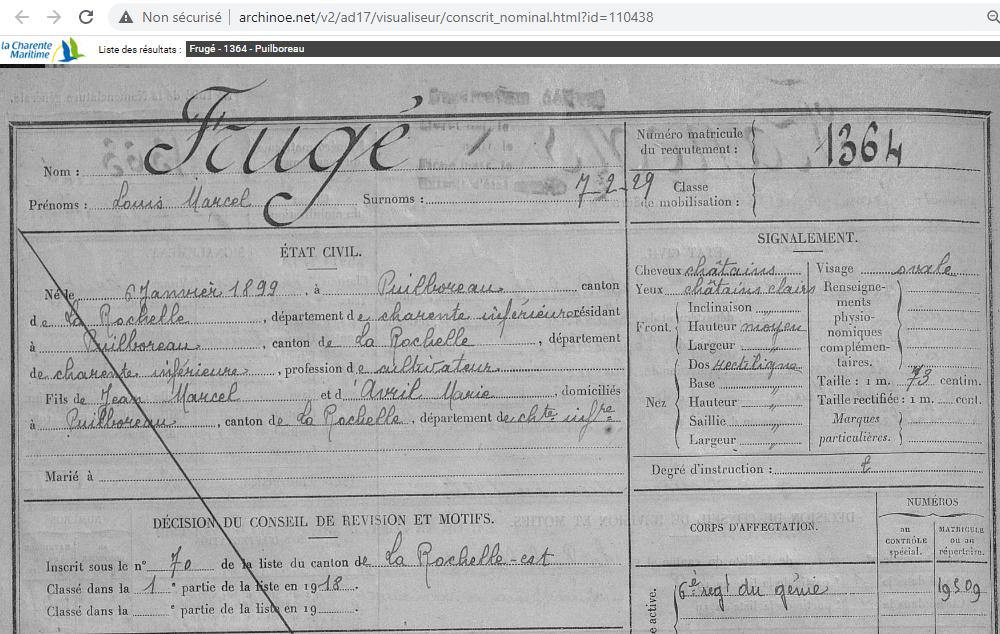 Non sécurisé | archinoe.net/v2/ad17/visualiseur/conscrit_nominal.html?id=110438
la Charente Maritime
Liste des résultats : Frugé - 1364 - Puilboreau
Nom : Frugé
Numéro matricule du recrutement : 1364
Prénoms : Louis Marcel Surnoms : 7-2-29
Classe de mobilisation :
ÉTAT CIVIL.
Né le 6 Janvier 1899, à Puilboreau canton
de La Rochelle, département de charente inférieure résidant
à Puilboreau, canton de La Rochelle, département
de charente inférieure, profession de cultivateur
Fils de Jean Marcel et d'Avril Marie, domiciliés
à Puilboreau, canton de La Rochelle, département de chte infre
Marié à
SIGNALEMENT.
Cheveux châtains
Yeux châtains clairs
Front.
Inclinaison "
Hauteur moyen
Largeur "
Nez
Dos rectiligne
Base "
Hauteur "
Saillie "
Largeur "
Visage ovale
Renseigne-
ments
physio-
nomiques
complémen-
taires.
Taille : 1 m. 73 centim.
Taille rectifiée : 1 m. cent.
Marques
particulières.
Degré d'instruction :
DÉCISION DU CONSEIL DE REVISION ET MOTIFS.
Inscrit sous le n° 70 de la liste du canton de La Rochelle-est
Classé dans la 1e partie de la liste en 1918.
Classé dans la e partie de la liste en 19
CORPS D'AFFECTATION.
NUMÉROS
au
CONTRÔLE
spécial.
MATRICULE
ou au
répertoire.
e active.
6e regt du génie
19509